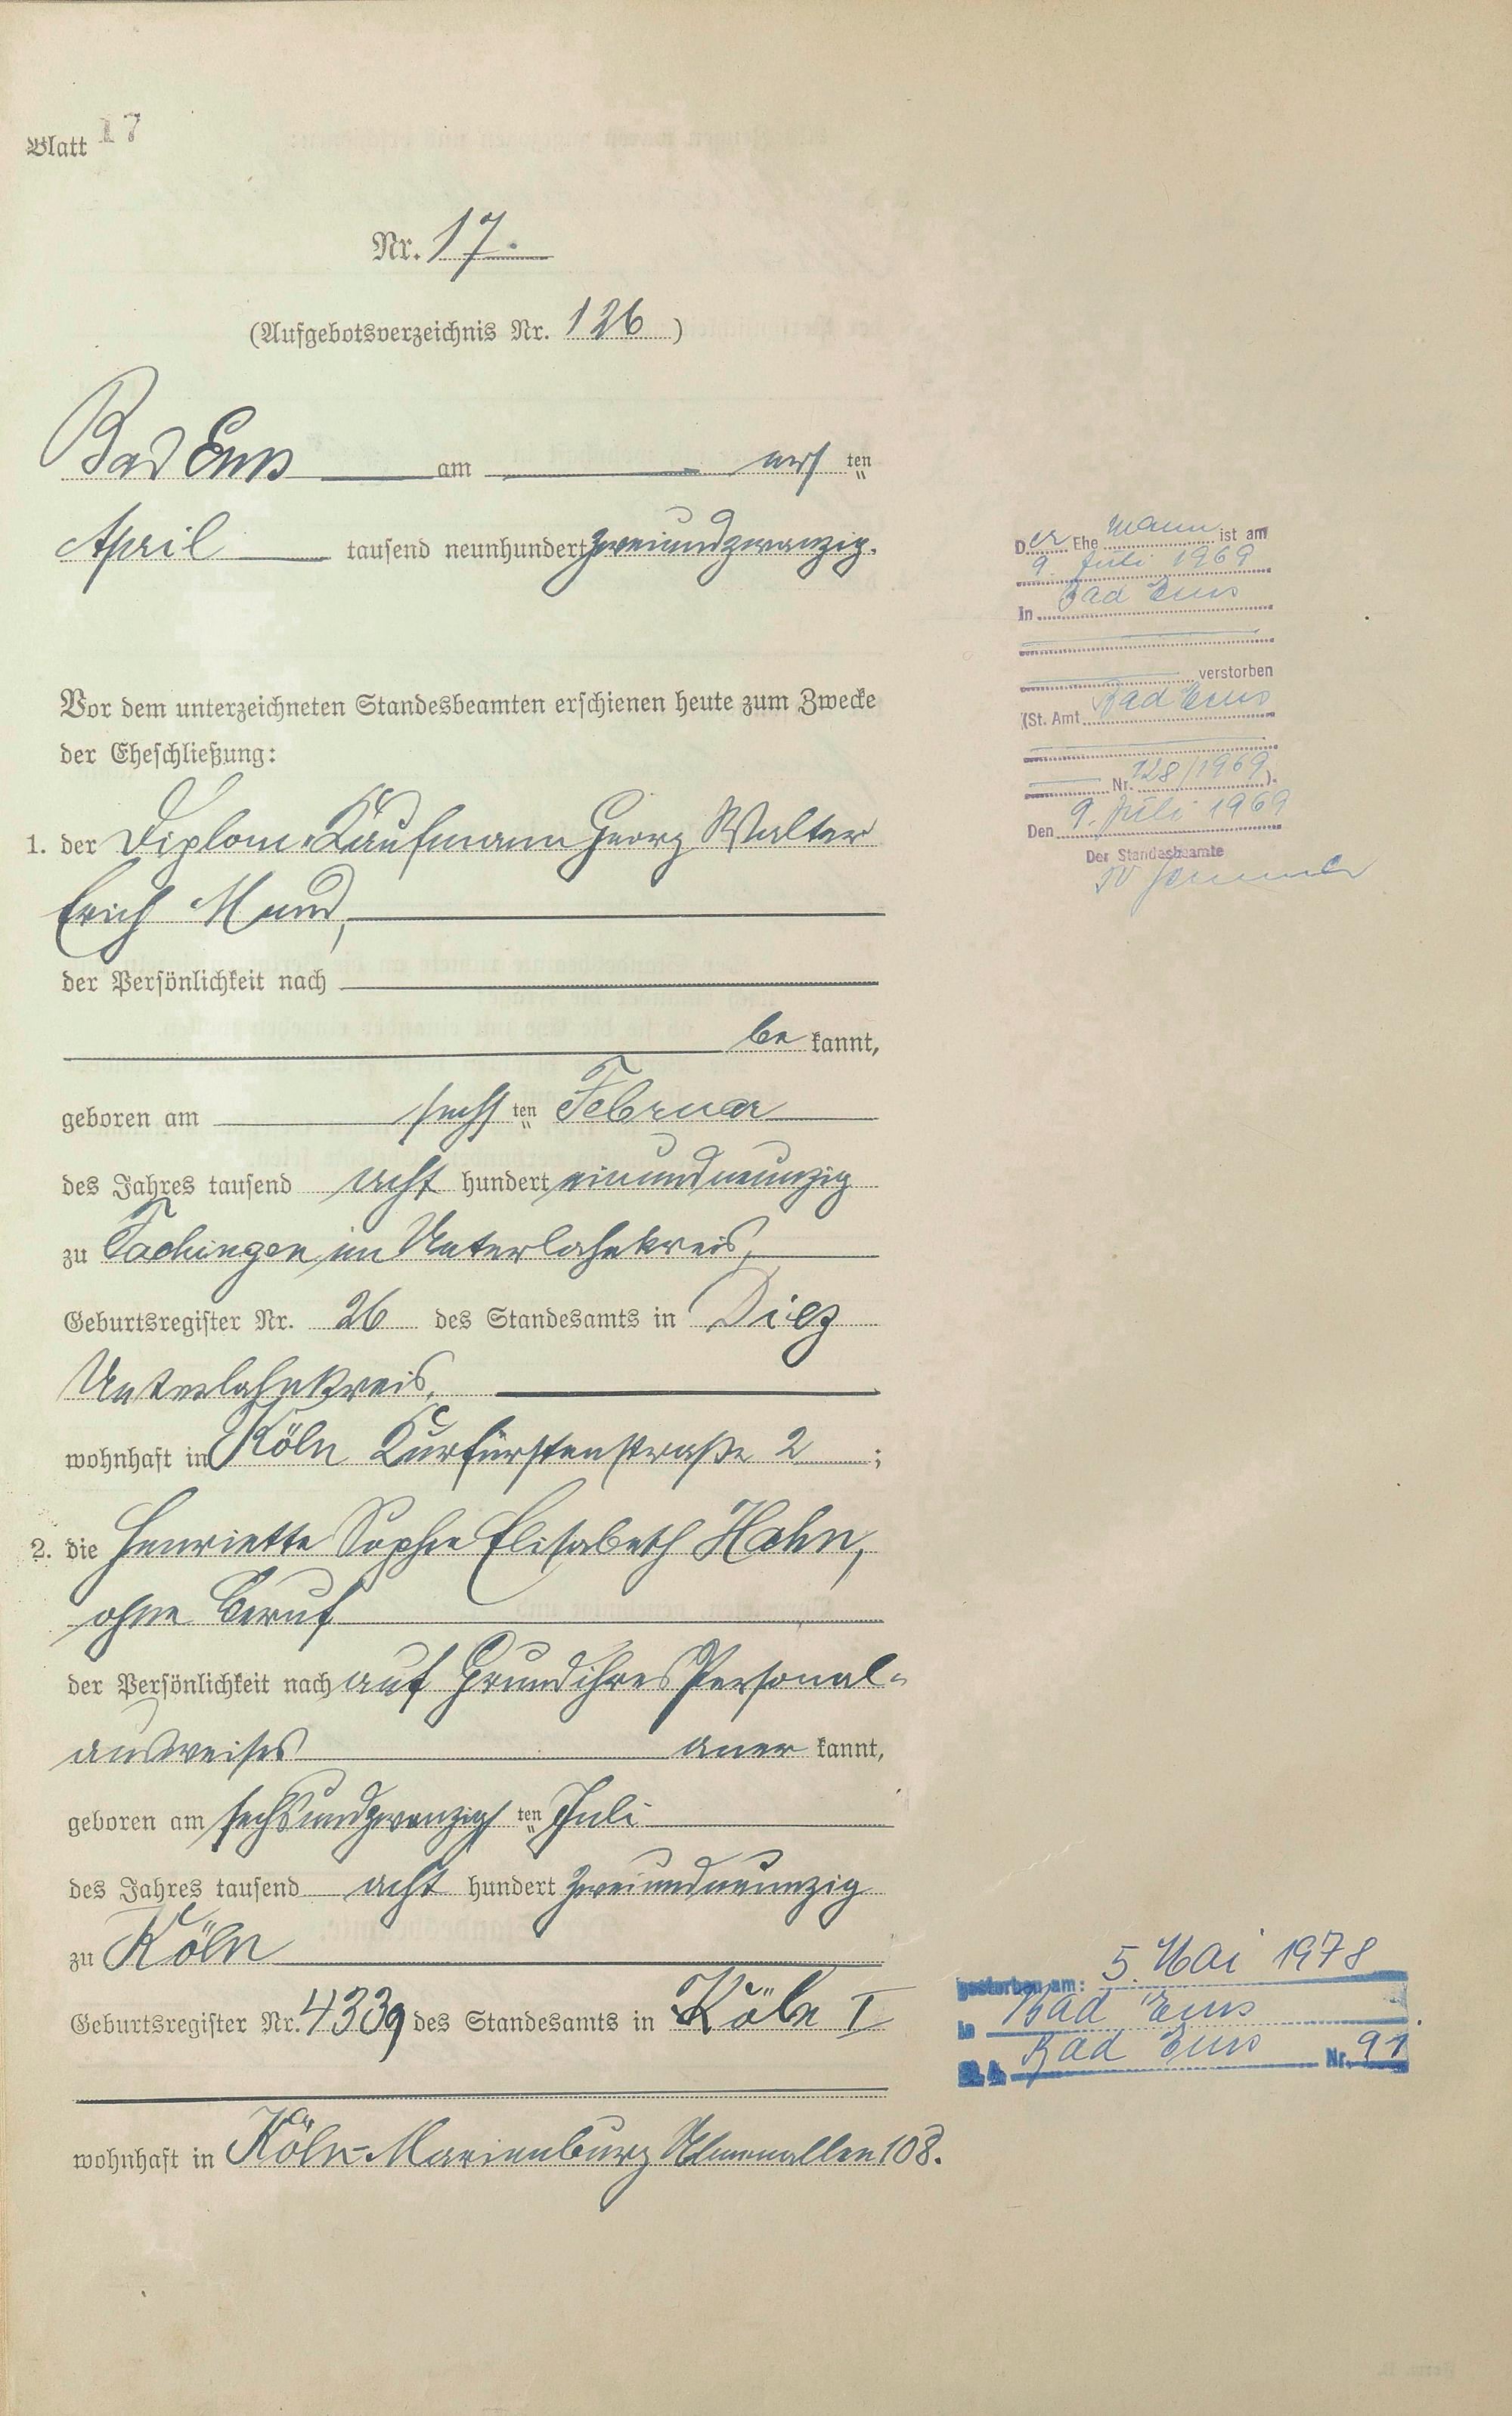 Blatt 17
Nr. 17.
(Aufgebotsverzeichnis Nr. 126)
Bad Ems am ersten
April tausend neunhundert zweiundzwanzig.
Vor dem unterzeichneten Standesbeamten erschienen heute zum Zwecke
der Eheschließung:
1. der Diplom-Kaufmann Georg Walter
Erich Mund,
der Persönlichkeit nach
be kannt,
geboren am sechs ten Februar
des Jahres tausend acht hundert einundneunzig
zu Fachingen im Unterlahnkreis,
Geburtsregister Nr. 26 des Standesamts in Diez
Unterlahnkreis,
wohnhaft in Köln Kurfürstenstraße 2 ;
2. die Henriette Sophie Elisabeth Hahn,
ohne Beruf
der Persönlichkeit nach auf Grund ihres Personal-
ausweises aner kannt,
geboren am sechsundzwanzigsten Juli
des Jahres tausend acht hundert zweiundneunzig
zu Köln
Geburtsregister Nr. 4339 des Standesamts in Köln I
wohnhaft in Köln-Marienburg Ulmenallee 108.
Der Ehe mann ist am
9. Juli 1969
In Bad Ems
verstorben
(St. Amt Bad Ems
Nr. 128/1969).
Den 9. Juli 1969
Der Standesbeamte
gestorben am: 5. Mai 1978
in Bad Ems
St. A. Bad Ems Nr. 91